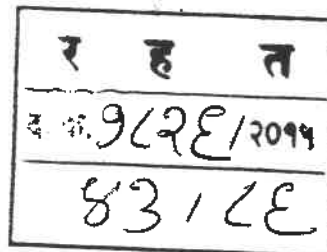 र ह त
१८२६/२०१५
४३/८६